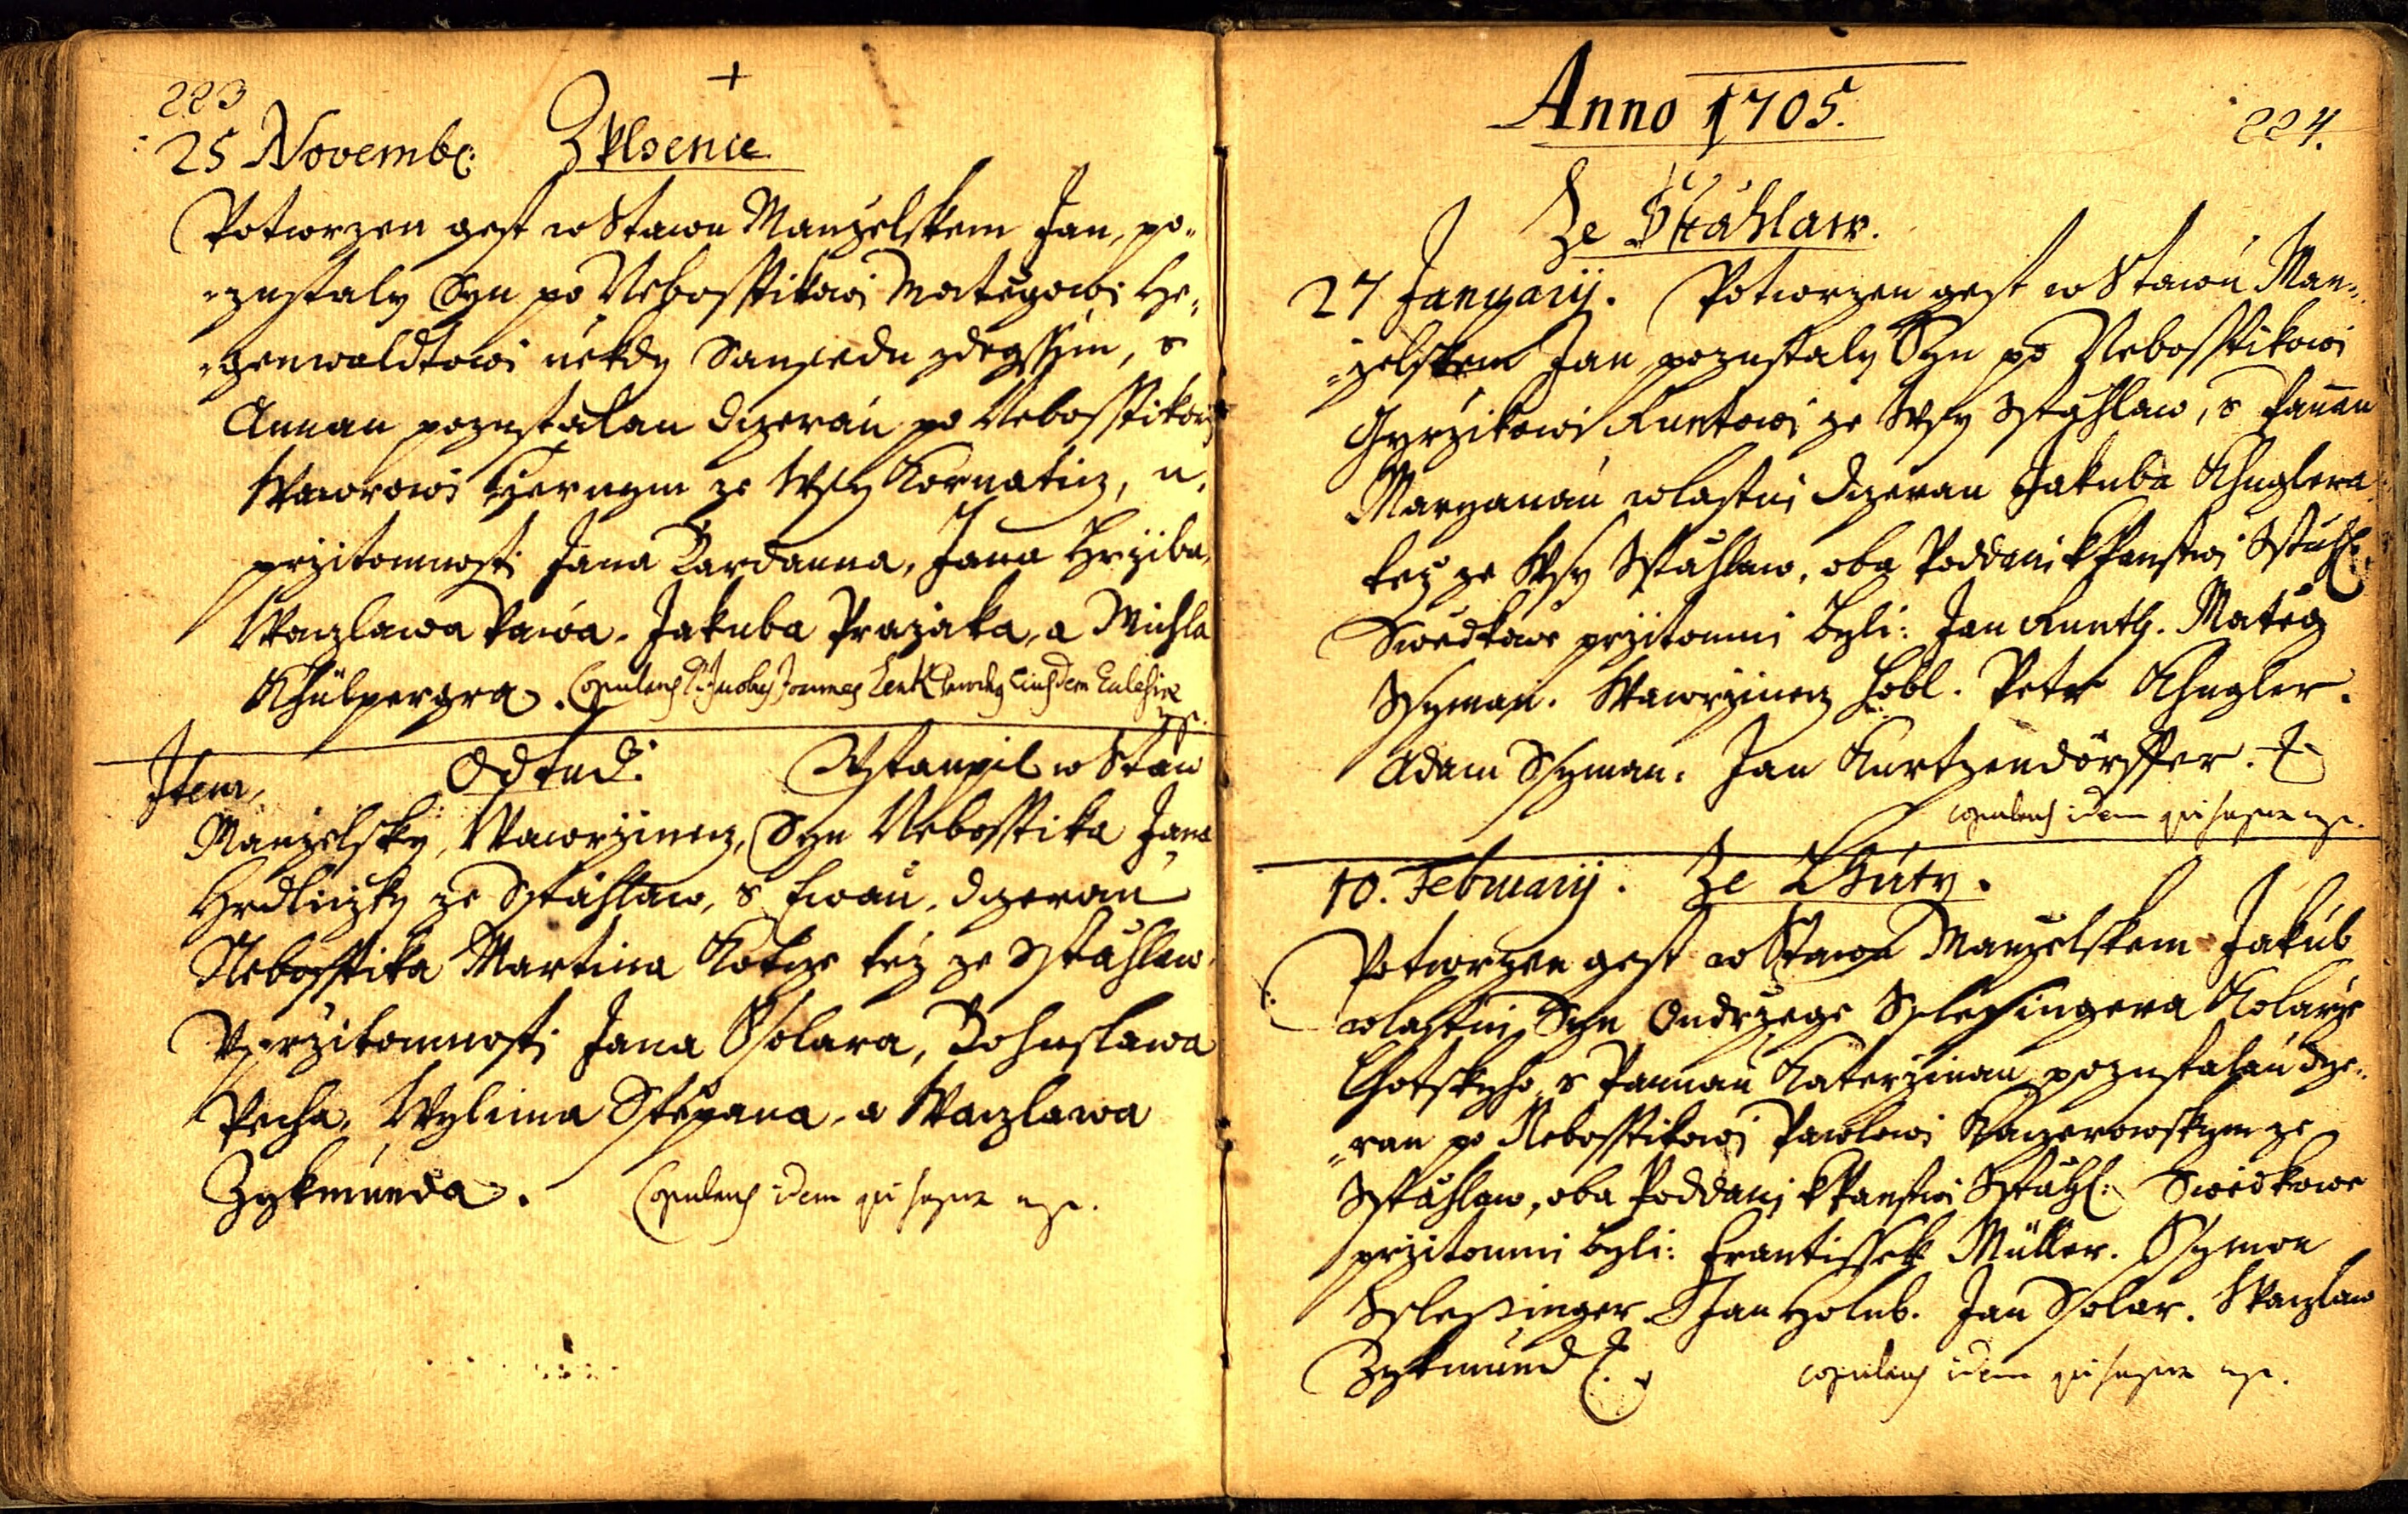 223
+
25 Novembr: Zplsenie
Potwrzen gest w Stawu Manzelskem Jan, po-
-zustaly Syn po Nebosstikowi Matiegowi He-
-genwaldtowi niekdy Sausedu zdegssym, s
Annau pozustalau dczerau po Nebosstikowi
Wawrowi Czernym ze Wsy Kornaticz, u
przitomnosti Jana Kardanna, Jana Hrziba,
Waczlawa Pawa. Jakuba Prazaka, a Michla
Khülpergra. Copulans P. Jacobus Joannes Zenk Parochus Eiusdem Ecclesiae
mp.
Item, Odtud. Wstaupil w Staw
Manzelsky, Wawrzinecz, Syn Nebosstika Jana
Hrdliczky ze Sstáhlaw, s Ewau, dczerau
Nebosstika Martina Kotze téz ze Sstáhlaw.
Wprzitomnosti Jana Solara, Bohuslawa
Pecha, Wylima Stépana, a Waczlawa
Zykmunda. Copulans idem qui supra mp.
Anno 1705.
224.
Ze Sstáhlaw.
27 January. Potwrzen gest w Stawu Man-
-zelskem Jan pozustaly Syn po Nebosstikowi
Gyrzikowi Runtowi ze Wsy Sstáhlaw, s Pannau
Maryanau wlastni dczerau Jakuba Khuglera
tez ze Wsy Sstáhlaw, oba Poddani k Panstwi Sstáhl:
Swedkowe przitomni byli: Jan Runth. Matieg
Ssyman. Wawrzinecz Hobl. Petr Khugler.
Adam Ssyman. Jan Kurtzendörffer.
copulans idem qui supra mp.
10. February. Ze Lhúty.
Potwrzen gest w Stawu Manzelskem Jakub
wlastni Syn Ondrzege Sslesingera Kolarze
Lhotskyho, s Pannau Katerzinau pozustalau dcze-
-rau po Nebosstikowi Pawlowi Kaczerowskym ze
Sstáhlaw, oba Poddani k Panstwi Sstáhl: Swedkowe
przitomni byli: Frantissek Müller. Ssymon
Sslessinger. Jan Holub. Jan Solar. Waczlaw
Zykmund
copulans idem qui supra mp.